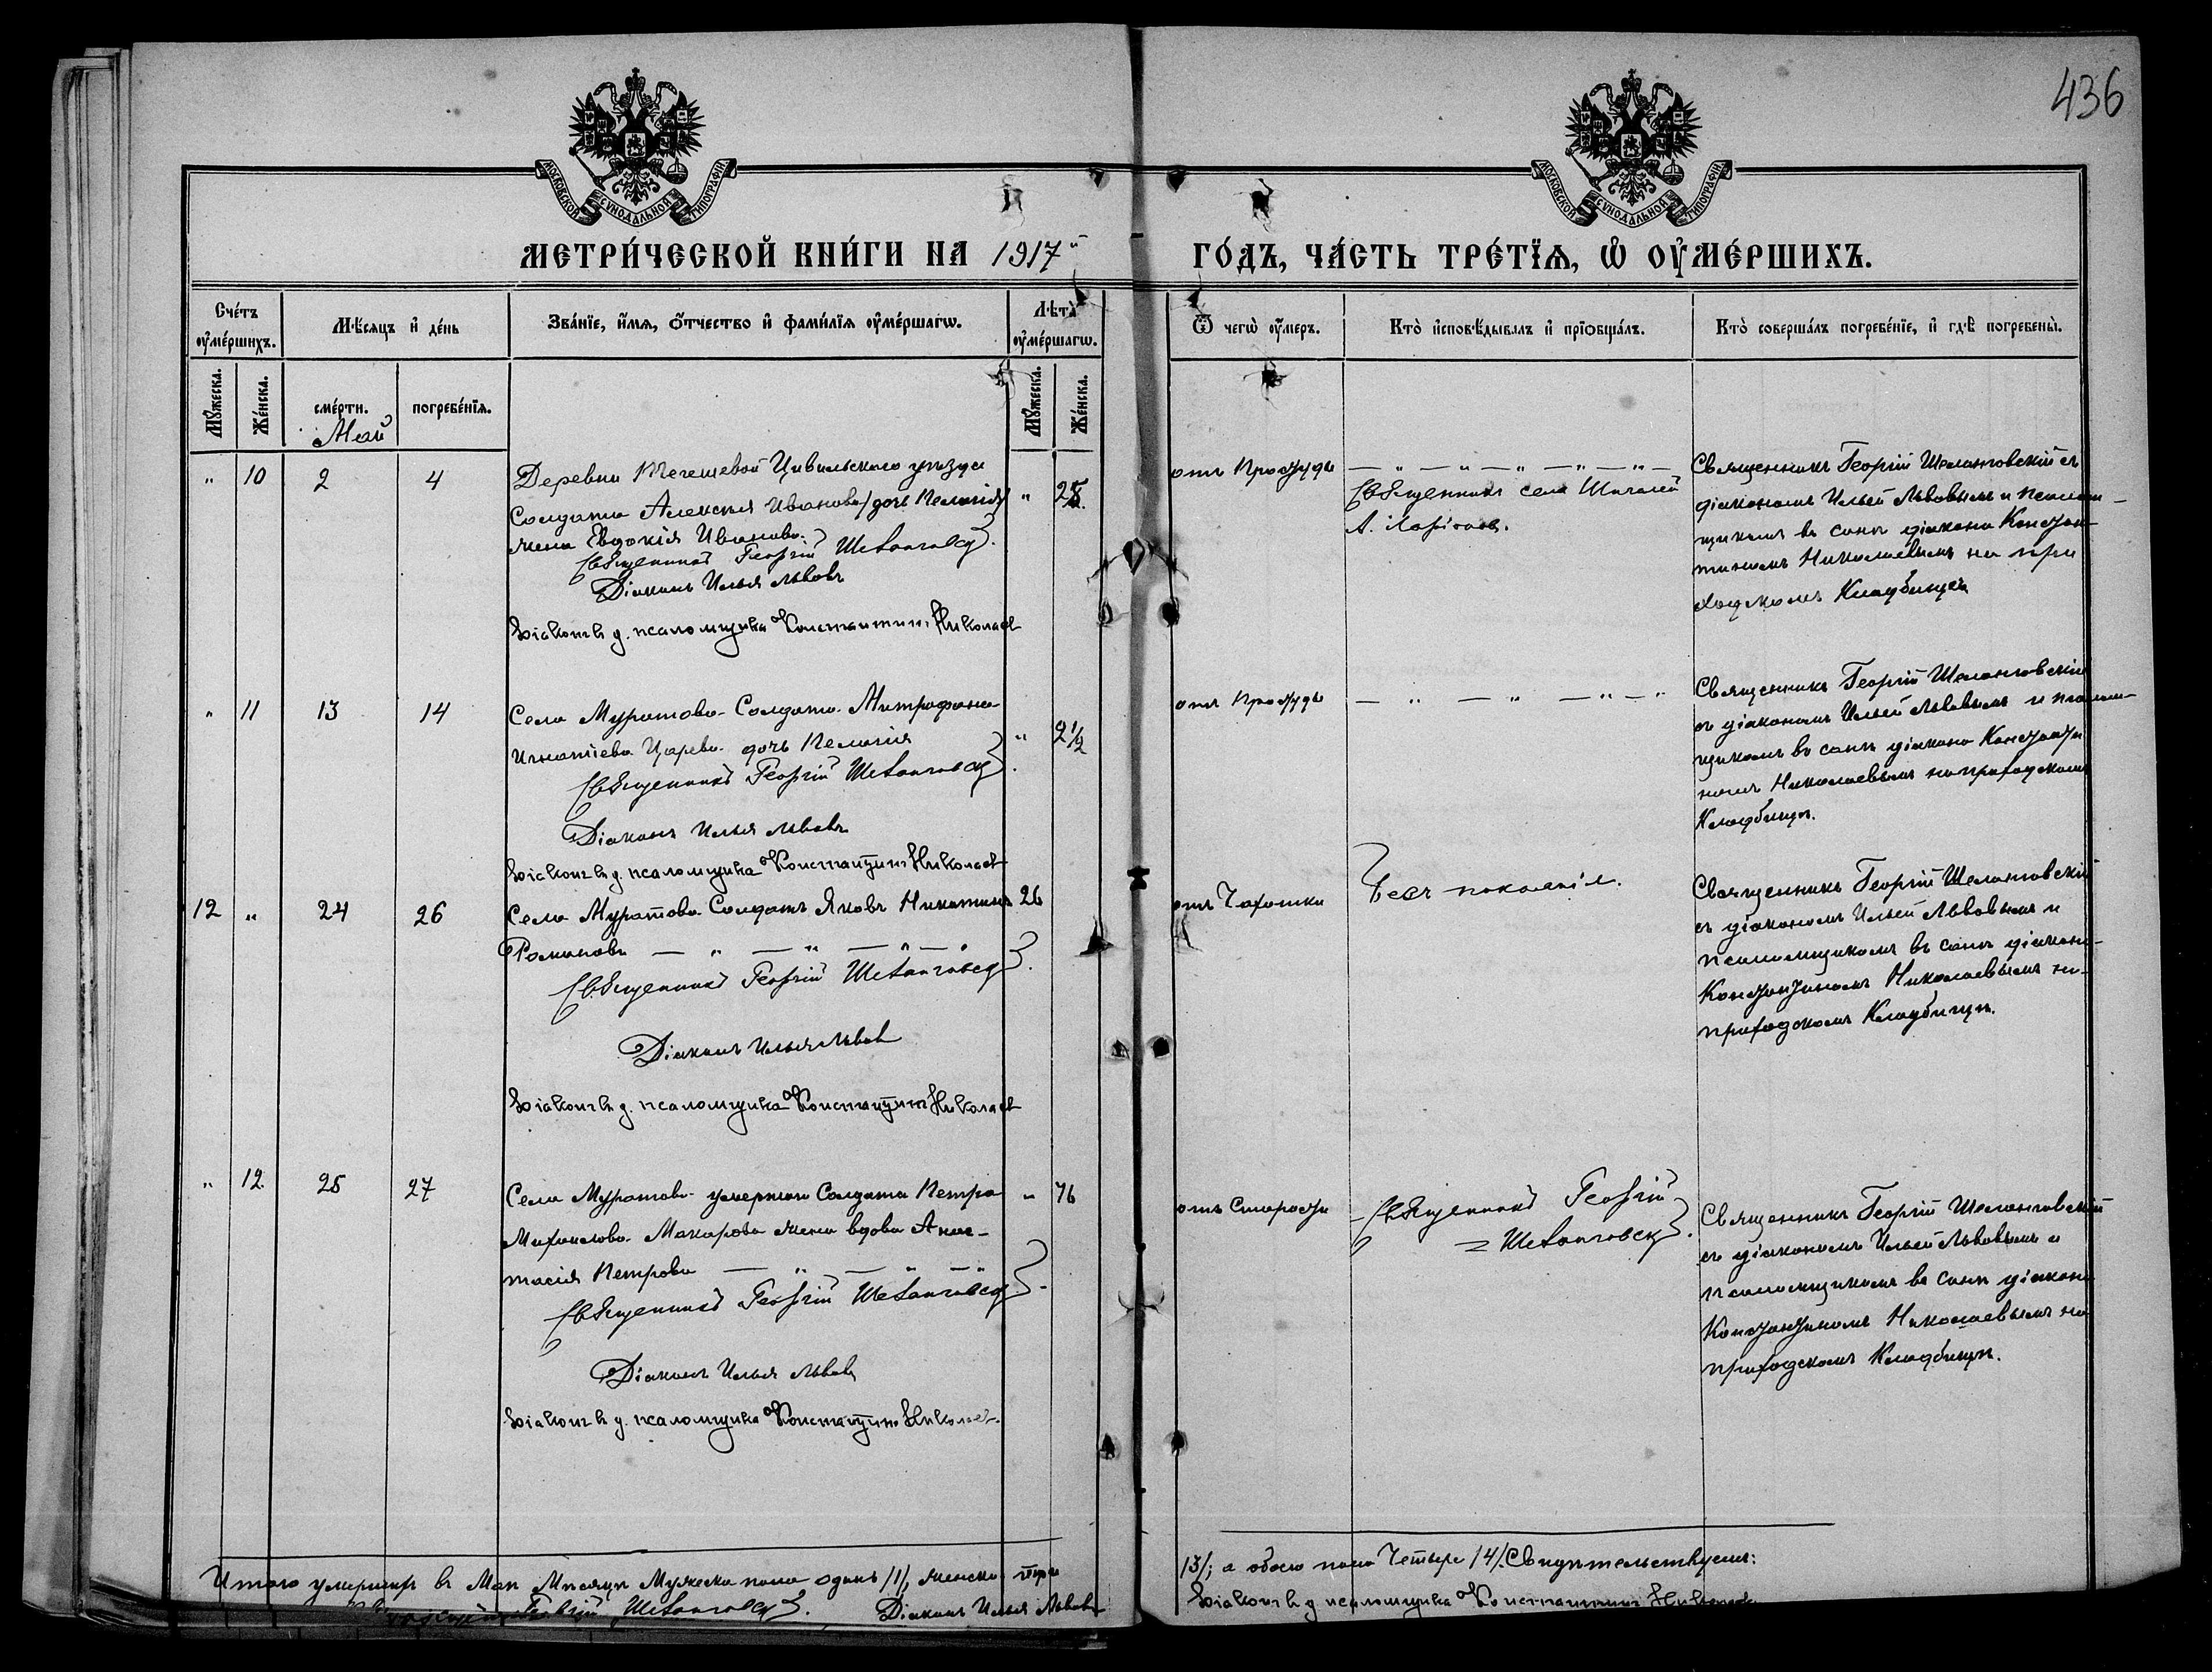 436
МОСКОВСКОЙ СѴНОДАЛЬНОЙ ТИПОГРАФІИ
МОСКОВСКОЙ СѴНОДАЛЬНОЙ ТИПОГРАФІИ
МЕТРИ́ЧЕСКОЙ КНИ́ГИ НА 1917й ГО́ДЪ, ЧА́СТЬ ТРЕ́ТІѦ, Ѡ҆ ОУ҆МЕ́РШИХЪ.
Сче́тъ оу҆ме́ршихъ.
Мѣ́сяцъ и҆ де́нь
Зва́нїе, и҆́мѧ, ѻ҆́тчество и҆ фами́лїѧ оу҆ме́ршагѡ.
Лѣ́та оу҆ме́ршагѡ.
Ѿ чегѡ̀ оу҆́меръ.
Кто̀ и҆сповѣ́дывалъ и҆ прїѡбща́лъ.
Кто̀ соверша́лъ погребе́нїе, и҆ гдѣ̀ погребены̀.
Мꙋ́жеска.
Же́нска.
сме́рти.
погребе́нїѧ.
Мꙋ́жеска.
Же́нска.
Май
" 10 2 4
Деревни Тегешевой Цивильскаго уѣзда
солдата Алексѣя Иванова
жена Евдокія Иванова.
Священникъ Георгій
Діаконъ Илья Львовъ
Діаконъ н д. псаломщика Константинъ Николаев
"
отъ Простуды
— " — " — " — " — " —
Священникъ села
А.
Священникъ Георгій съ
діакономъ Ильей Львовымъ и псалом-
щикомъ въ санѣ діакона Констан-
тиномъ Николаевымъ на при
ходскомъ Кладбищѣ
" 11 13 14
Села Муратова Солдата Митрофана
Игнатіева Царева дочь Пелагія
Священникъ Георгій
Діаконъ Илья Львовъ
Діаконъ н д. псаломщика Константинъ Николаев
" 2½
отъ Простуды
— " — " — " — "
Священникъ Георгій
съ діакономъ Ильей Львовымъ и псалом-
щикомъ въ санѣ діакона Константи
номъ Николаевымъ на приходскомъ
Кладбищѣ.
12 " 24 26
Села Муратова Солдатъ Яковъ Никитинъ
Романовъ — " — " — " — "
Священникъ Георгій
Діаконъ Илья Львов
Діаконъ н д. псаломщика Константинъ Николаев
26
отъ Чахотки
Безъ покаянія.
Священникъ Георгій
съ діакономъ Ильей Львовымъ и
псаломщикомъ въ санѣ діакона
Константиномъ Николаевымъ на
приходскомъ Кладбищѣ.
" 12 25 27
Села Муратова умершаго Солдата Петра
Михаилова Макарова жена вдова Анас-
тасія Петрова — " — " — "
Священникъ Георгій
Діаконъ Илья Львовъ
Діаконъ н д. псаломщика Константинъ Николаев
" 76
отъ Старости
Священникъ Георгій
Священникъ Георгій
съ діакономъ Ильей Львовымъ и
псаломщикомъ въ санѣ діакона
Константиномъ Николаевымъ на
приходскомъ Кладбищѣ.
Итого умершихъ въ Маѣ Мѣсяцѣ Мужеска пола одинъ /1/, женска три
/3/; а обоего пола Четыре /4/. Свидѣтельствуемъ:
Священникъ Георгій
Діаконъ Илья Львовъ
Діаконъ н д псаломщика Константинъ Николаев